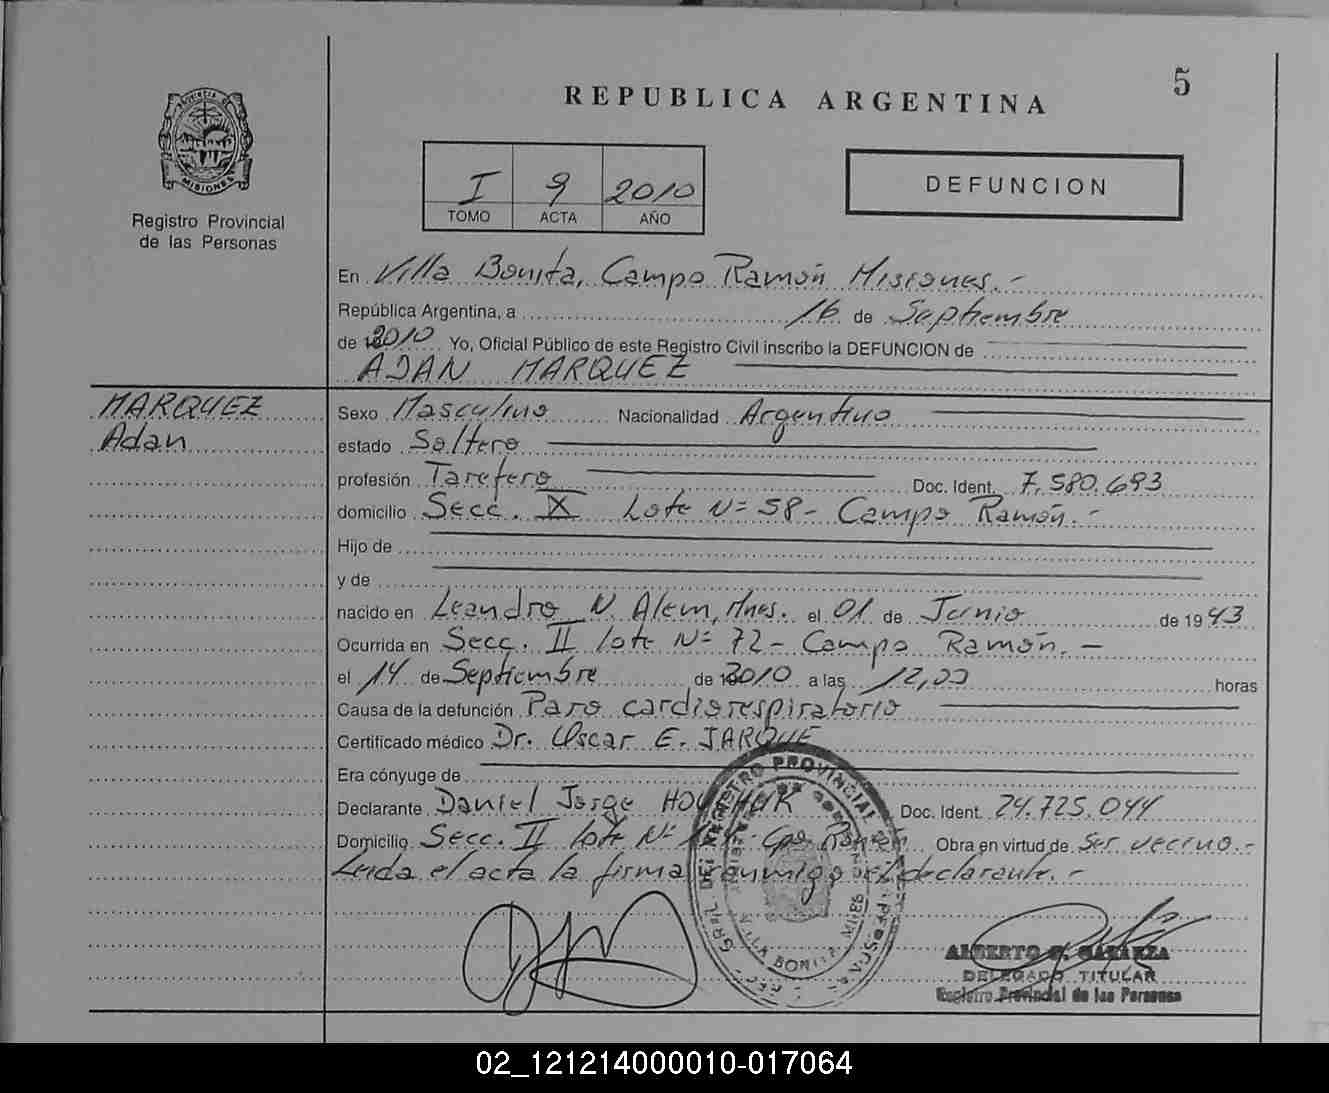 5
REPUBLICA ARGENTINA
PROVINCIA DE
MISIONES
Registro Provincial
de las Personas
I 9 2010
TOMO ACTA AÑO
DEFUNCION
En Villa Bonita, Campo Ramón Misiones.-
República Argentina, a 16 de Septiembre
de 2010 Yo, Oficial Público de este Registro Civil inscribo la DEFUNCION de
ADAN MARQUEZ
MARQUEZ
Adan
Sexo Masculino Nacionalidad Argentino
estado Soltero
profesión Tarefero Doc. Ident. 7.580.693
domicilio Secc. X Lote Nº 58 - Campo Ramón.-
Hijo de
y de
nacido en Leandro N. Alem, Mnes. el 01 de Junio de 1943
Ocurrida en Secc. II lote Nº 72 - Campo Ramón.-
el 14 de Septiembre de 2010 a las 12,00 horas
Causa de la defunción Paro cardiorespiratorio
Certificado médico Dr. Oscar E. JARQUE
Era cónyuge de
Declarante Daniel Jorge Doc. Ident. 24.725.044
Domicilio Secc. II lote Nº Cpo Ramón Obra en virtud de Ser vecino.-
Leida el acta la firma conmigo el declarante.-
GRAL DEL REGISTRO PROVINCIAL DE LAS PERSONAS
VILLA BONITA MNES
ALBERTO GALARZA
DELEGADO TITULAR
Registro Provincial de las Personas
02_121214000010-017064